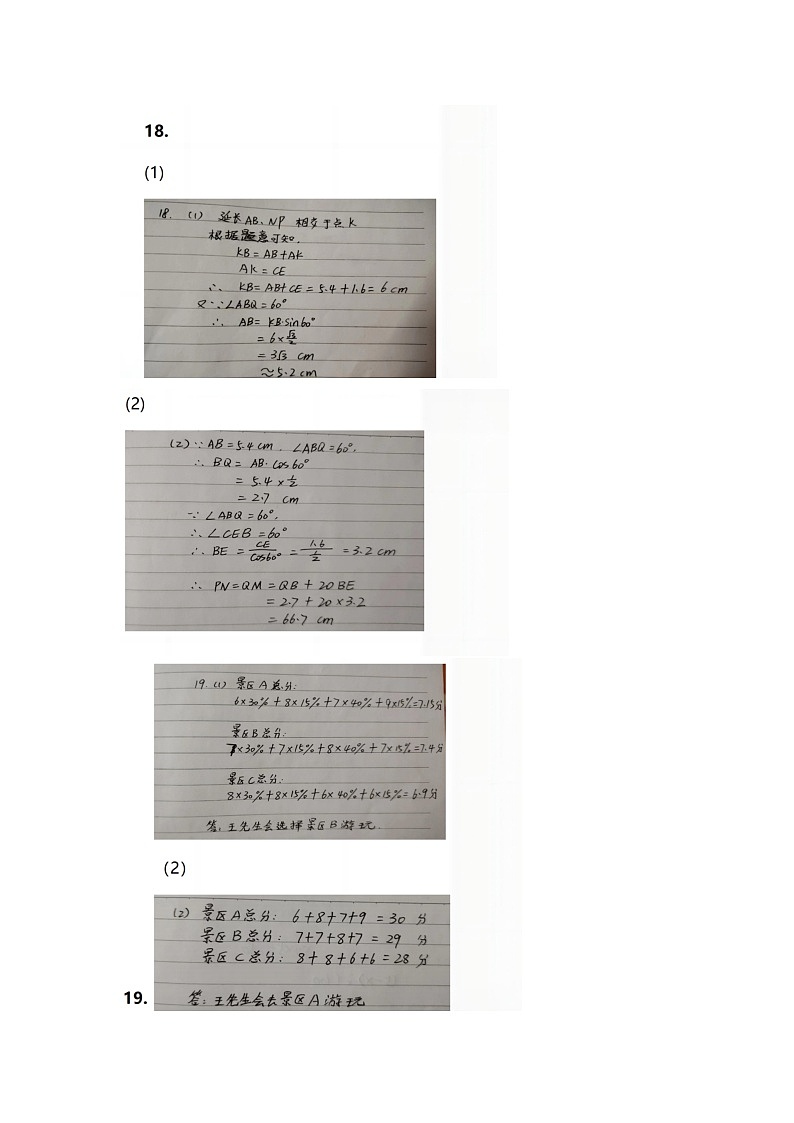 18.
(1)
18. (1) 延长AB、NP 相交于点K
根据题意可知.
KB=AB+AK
AK=CE
∴ KB=AB+CE=5.4+1.6=6cm
又∵∠ABQ=60°
∴ AB=KB·sin60°
=6×√3/2
=3√3 cm
≈5.2cm
(2)
(2)∵AB=5.4cm. ∠ABQ=60°.
∴ BQ= AB·cos60°
= 5.4×1/2
= 2.7 cm
∵∠ABQ=60°.
∴∠CEB=60°
∴ BE = CE/cos60° = 1.6/(1/2) =3.2cm
∴ PN=QM=QB+20BE
=2.7+20×3.2
=66.7 cm
19.(1) 景区A总分:
6×30%+8×15%+7×40%+9×15%=7.15分
景区B总分:
7×30%+7×15%+8×40%+7×15%=7.4分
景区C总分:
8×30%+8×15%+6×40%+6×15%=6.9分
答:王先生会选择景区B游玩.
(2)
(2) 景区A总分: 6+8+7+9=30 分
景区B总分: 7+7+8+7=29 分
景区C总分: 8+8+6+6=28分
19. 答:王先生会去景区A游玩